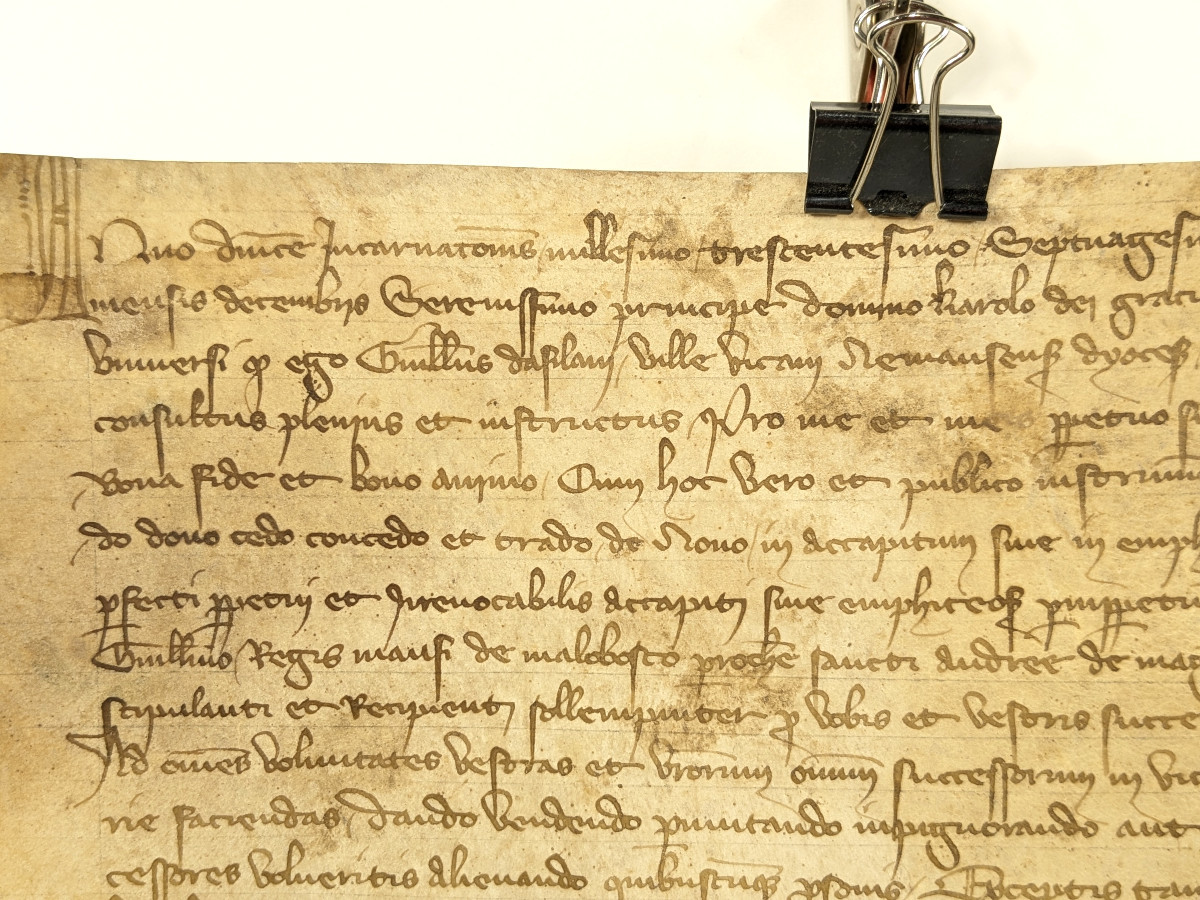 Anno dnice Incarnatonis millesimo trescentesimo Septuagesi
mensis decembris Serenissimo principe domino karolo dei graci
Universi q ego Guillms dasilam ville vicani Nemausens dyoces
consultus plenius et instructus Pro me et me ppetuo s
bona fide et bono animo Cum hoc vero et publico instrum
do dono cedo concedo et trado de Novo in accapitum sive in emph
pfecti ppetui et Irrevocabilis accapiti sive emphiteos pmppetu
Guillmo Regis mansi de malobosco prochie sancti andree de ma
stipulanti et Recipienti sollempniter p vobis et vestris succe
Ad omes voluntates vestras et vrorum omium successorum in vi
rie faciendas dando vendendo pmutando inpignorando aut
cessores volueritis alienando quibuscuq psonis Exceptis